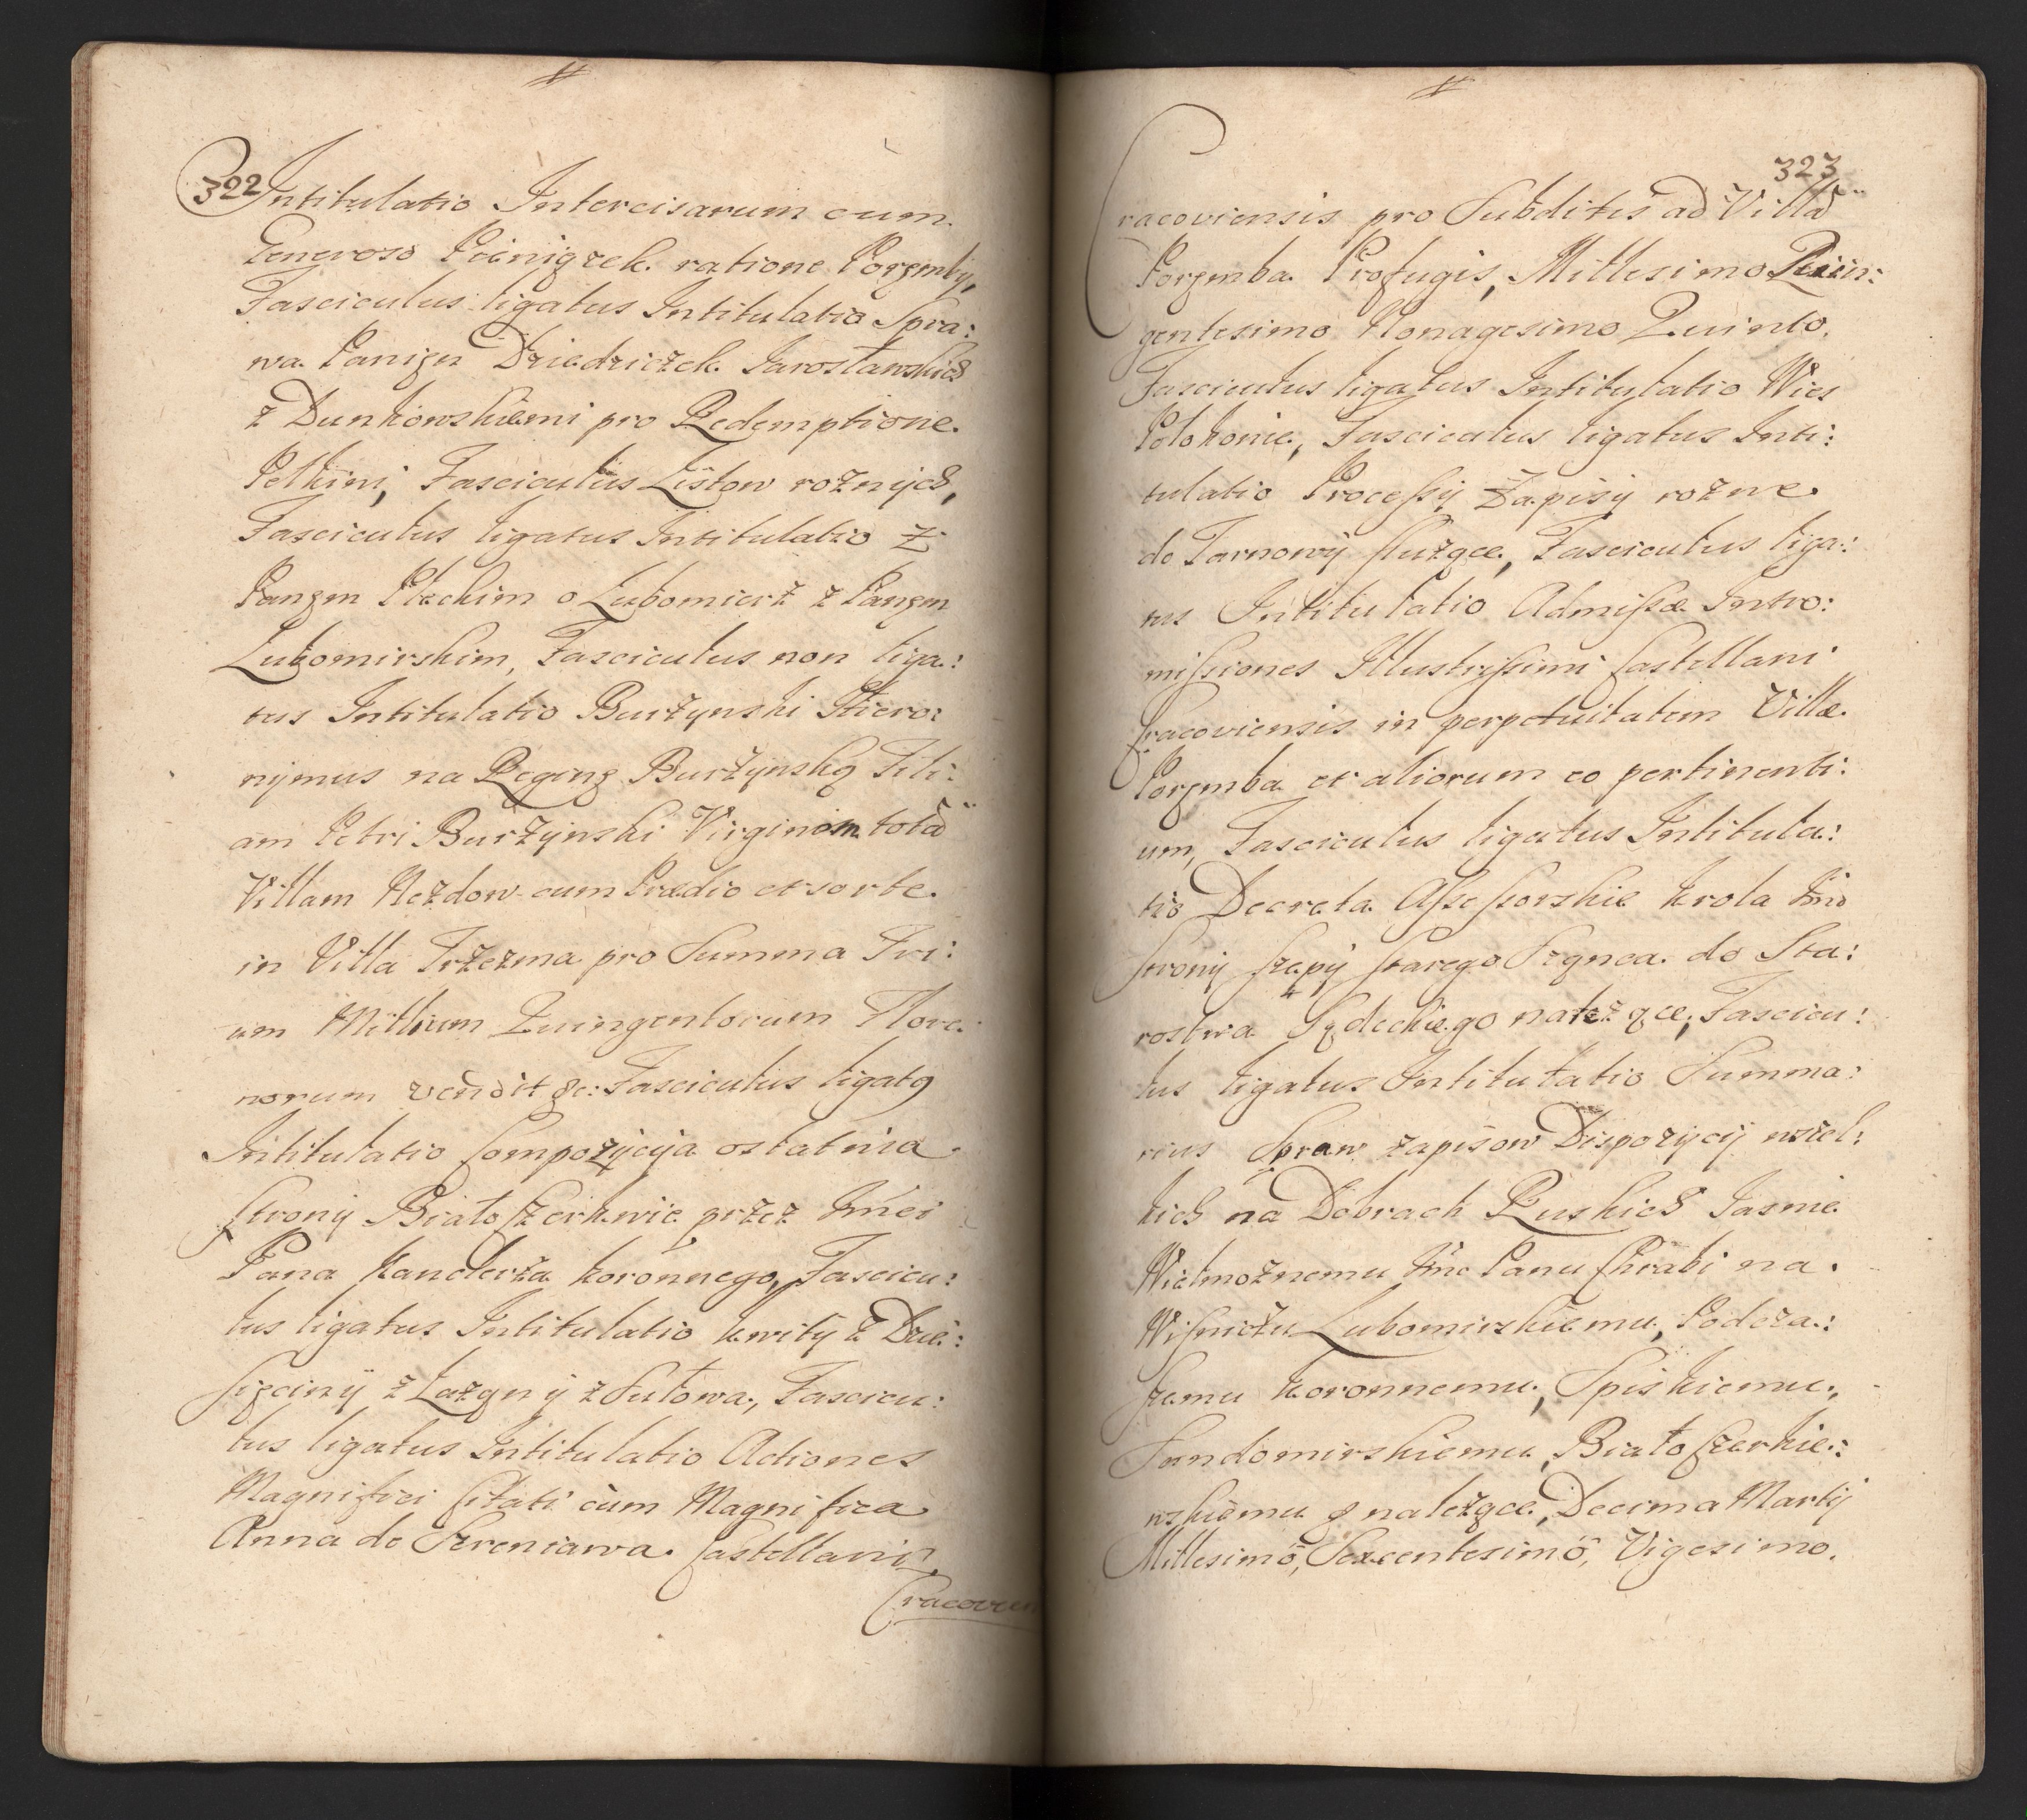 322
Intitulatio Intercisarum cum
Generoso Pieniążek ratione Poręmby,
Fasciculus ligatus Intitulatio Spra:
wa Panięn Dziedziczek Jarosławskich
z Dunkowskiemi pro Redemptione
Pelkini, Fasciculus Listow rożnych,
Fasciculus ligatus Intitulatio Z
Panęm Płackim o Lubomierz z Panęm
Lubomirskim, Fasciculus non liga:
tus Intitulatio Burzynski Hiero:
nymus na Reginę Burzynską Fili:
am Petri Burzynski Virginem totā
Villam Nezdow cum Prædio et sorte
in Villa Trzezma pro Summa Tri:
um Millium Quingentorum Flore:
norum vendit &c: Fasciculus ligatq
Intitulatio Compozycyja ostatnia
strony Białoszerkwie przez Jmci
Pana Kanclerza koronnego, Fascicu:
lus ligatus Intitulatio kwity z Dzie:
sięciny z Łazan y z Sułowa, Fascicu:
lus ligatus Intitulatio Actiones
Magnifici Citati cum Magnifica
Anna de Sreniawa Castellani
Cracovien
323
Cracoviensis pro Subditis ad Villā
Poręmba Profugis, Millesimo Quin:
gentesimo Nonagesimo Quinto.
Fasciculus ligatus Intitulatio Wies
Polokonie, Fasciculus ligatus Inti:
tulatio Processy Zapisy rożne
do Tarnowy służące, Fasciculus liga:
tus Intitulatio Admissæ Intro:
missiones Illustrissimi Castellani
Cracoviensis in perpetuitatem Villæ
Poręmba et aliorum eo pertinenti:
um, Fasciculus ligatus Intitula:
tio Decreta Assessorskie krola Jmo
strony Szepy starego Sącza do Sta:
rostwa Sądeckiego należące, Fascicu:
lus ligatus Intitulatio Summa:
rius Spraw zapisow Dispozycij wszel:
kich na Dobrach Ruskich Jasnie
Wielmożnemu Jmc Panu Chrabi na
Wisniczu Lubomirskiemu, Podcza:
szemu koronnemu, Spiskiemu,
Sandomirskiemu, Białoszerkie:
wskiemu & należące, Decima Martij
Millesimō, Sexcentesimō, Vigesimo.